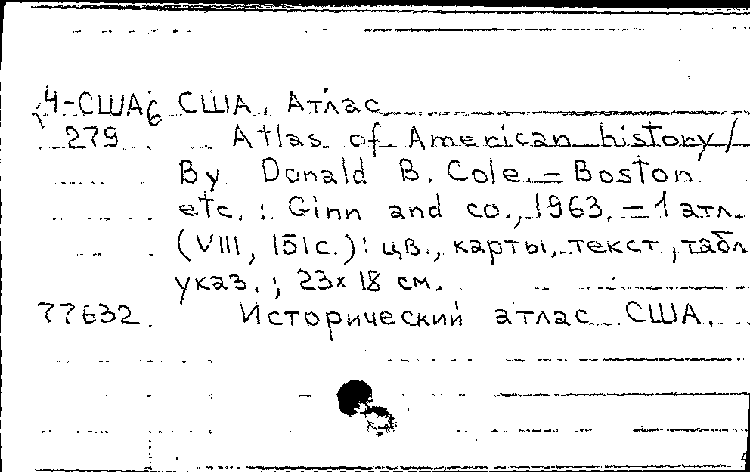 4-США6 США. Атлас
279 Atlas of American history /
By Donald B. Cole. – Boston
etc. : Ginn and co., 1963. – 1 атл.
(VIII, 151с.) : цв., карты, текст, табл
указ. ; 23x18 см.
77632. Исторический атлас США.